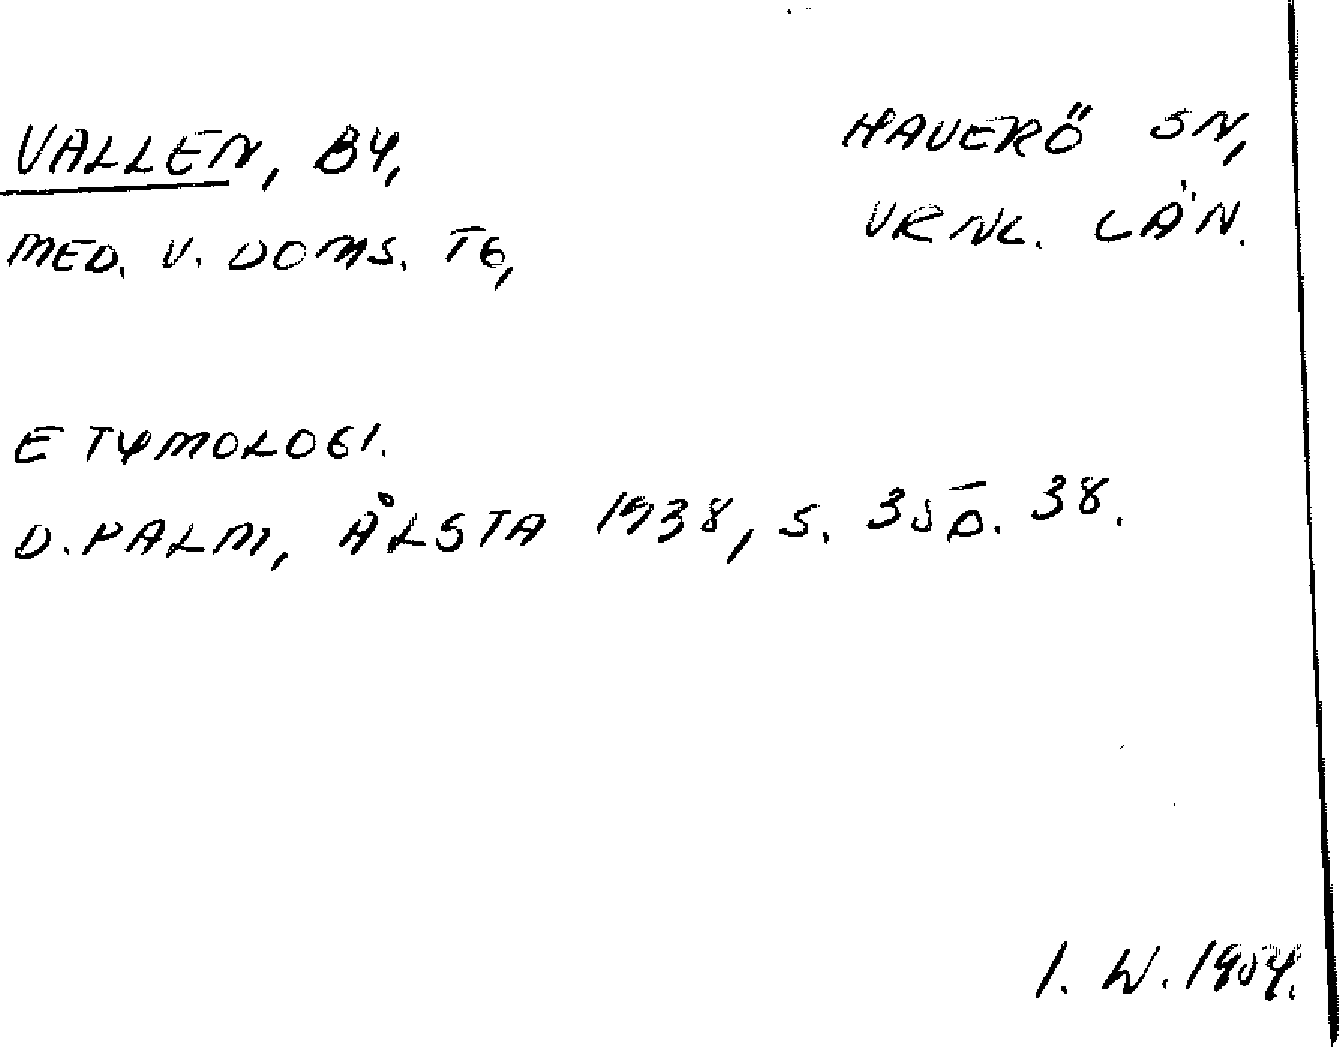 VALLEN, BY,
HAVERÖ SN,
MED. V. DOMS. TG,
VRNL. LÄN.
ETYMOLOGI.
D. PALM, ÅLSTA 1938, S. 35 O. 38.
I. W. 1954.